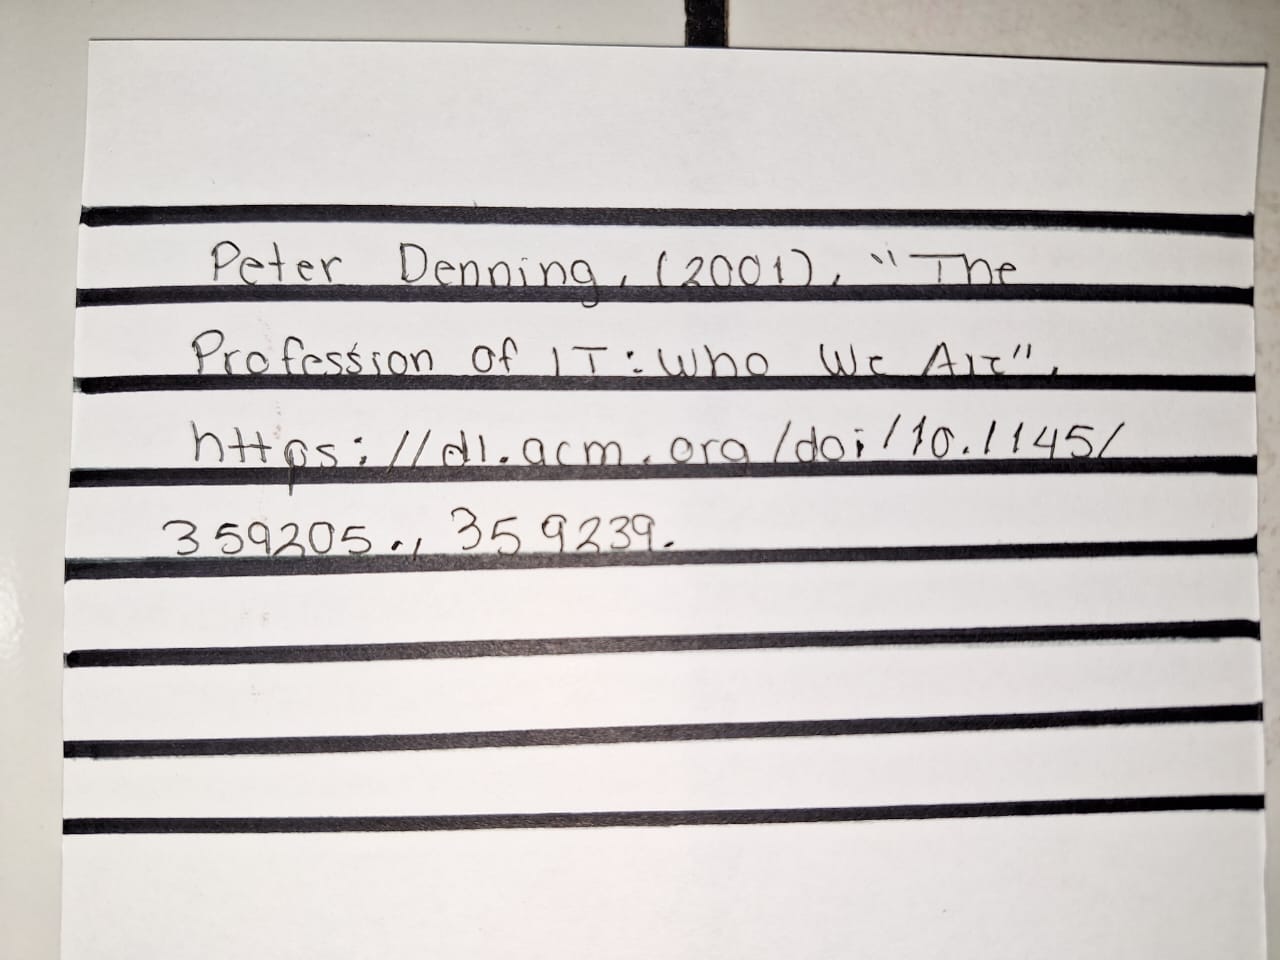 Peter Denning, (2001), "The
Profession of IT: Who We Are",
https://dl.acm.org/doi/10.1145/
359205., 359239.